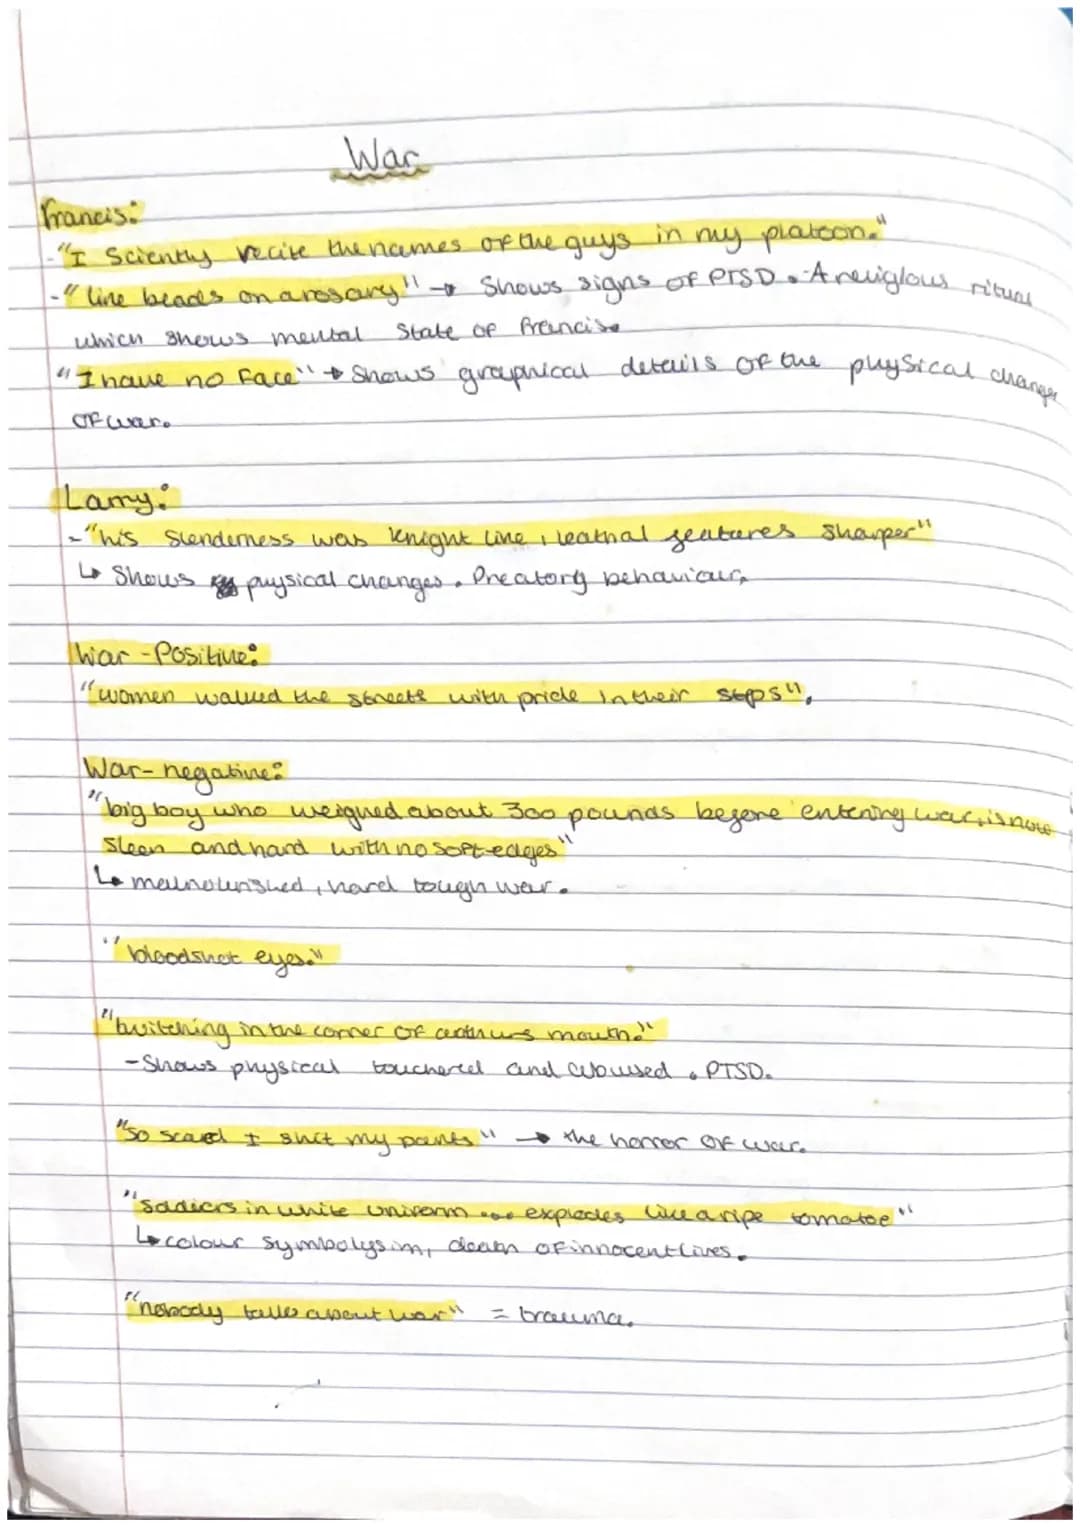 War
Francis:
- "I Sciently recite the names of the guys in my platoon."
- "like beads on a rosary" → Shows signs of PTSD. A reuiglous ritual
which shows mental State of Francis.
"I have no face" → Shows graphical details of the physical changes
Of war.
Larry:
- "his Slenderness was knight like, leathal features sharper"
↳ Shows physical changes. Preatory behaviour,
War - Positive:
"women walked the streets with pride in their steps",
War - negative:
"big boy who weighed about 300 pounds before entering war, is now
Sleen and hard with no soft edges"
↳ malnourished, hard tough war.
"bloodshot eyes."
"twitching in the corner of arthurs mouth."
- Shows physical touchered and abused. PTSD.
"So scared I shit my pants" → the horror of war.
"Sadiers in white uniform ... explodes like a ripe tomatoe"
↳ colour symbolysim, death of innocent lives.
"nobody talks about war" = trauma.